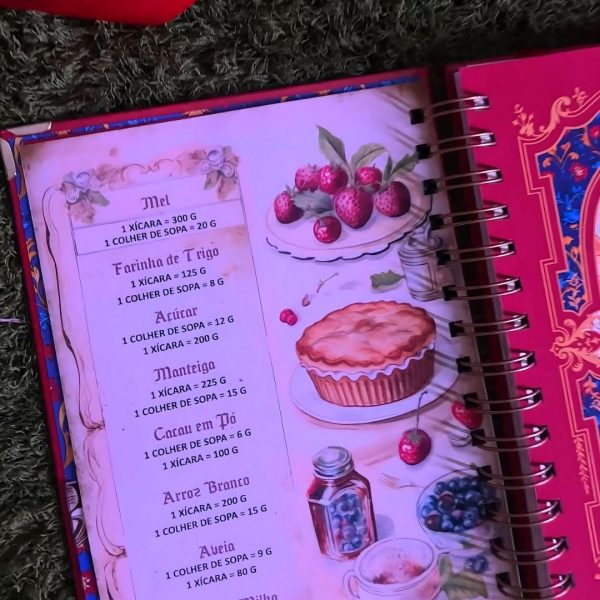 Mel
1 XÍCARA = 300 G
1 COLHER DE SOPA = 20 G
Farinha de Trigo
1 XÍCARA = 125 G
1 COLHER DE SOPA = 8 G
Açúcar
1 COLHER DE SOPA = 12 G
1 XÍCARA = 200 G
Manteiga
1 XÍCARA = 225 G
1 COLHER DE SOPA = 15 G
Cacau em Pó
1 COLHER DE SOPA = 6 G
1 XÍCARA = 100 G
Arroz Branco
1 XÍCARA = 200 G
1 COLHER DE SOPA = 15 G
Aveia
1 COLHER DE SOPA = 9 G
1 XÍCARA = 80 G